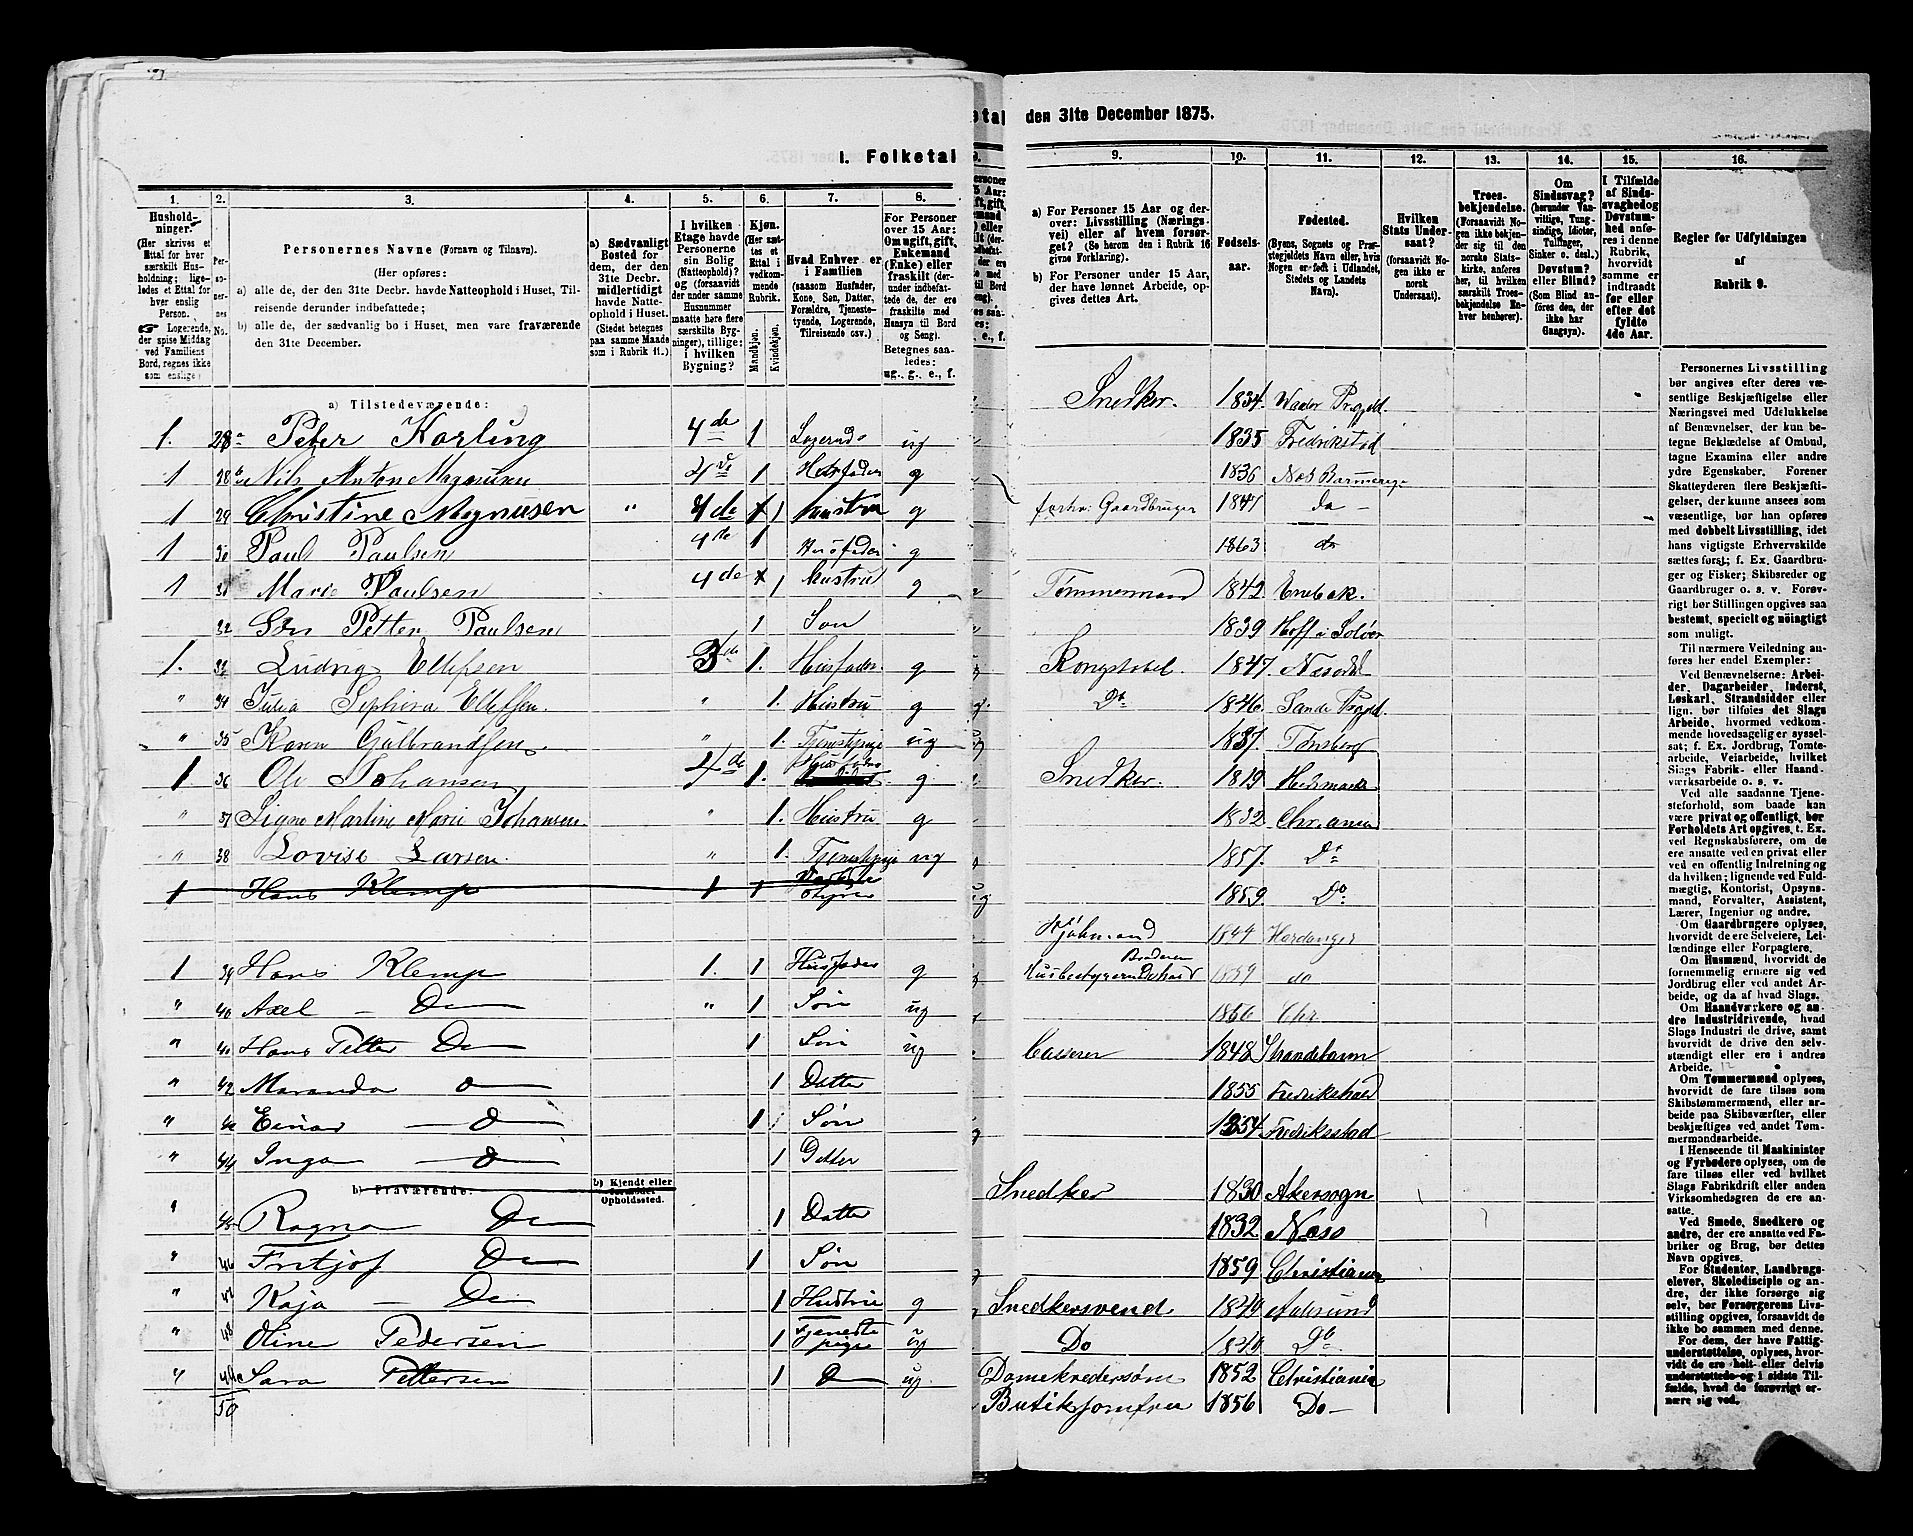 I. Folketal
1.
2.
3.
4.
5.
6.
7.
8.
Hushold-
ninger.
(Her skrives et
Ettal for hver
særskilt Hus-
holdning; lige-
ledes et Ettal for
hver enslig
Person.
☞ Logerende,
der spise Middag
ved Familiens
Bord, regnes ikke
som enslige.)
Personernes Navne (Fornavn og Tilnavn).
(Her opføres:
a) alle de, der den 31te Decbr. havde Natteophold i Huset, Til-
reisende derunder indbefattede;
b) alle de, der sædvanlig bo i Huset, men vare fraværende
den 31te December.
a) Sædvanligt
Bosted for
dem, der den
31te Decbr. havde
midlertidigt
Natte-
ophold i Huset.
(Stedet betegnes
paa samme Maade
som i Rubrik 11.)
I hvilken
Etage havde
Personerne
sin Bolig
(Natteophold)?
og (forsaavidt
der under samme
Husnummer
maatte høre flere
særskilte Byg-
ninger), tillige:
i hvilken
Bygning?
Kjøn.
(Her sæt-
tes et
Ettal i
vedkom-
mende
Rubrik.
Mandkjøn.
Kvindekjøn.
Hvad Enhver er
i Familien
(saasom Husfader,
Kone, Søn, Datter,
Forældre, Tjeneste-
tyende, Logerende,
Tilreisende osv.)
For Personer
over 15 Aar:
Om ugift, gift,
Enkemand
(Enke) eller
fraskilt (der-
under indbefat-
tede de, der ere
fraskilte med
Hensyn til Bord
og Seng).
Betegnes saa-
ledes:
ug., g., e., f.
a) Tilstedeværende:
1. 28a Peter Karling 4de 1 Logerende ug
1 28b Nils Anton Magnusen 4de 1 Husfader g
1 29 Christine Magnusen " 4de 1 hustru g
1 30 Paul Paulsen 4de 1 Husfader g
1 31 Marie Paulsen 4de 1 hustru g
32 Søn Petter Paulsen 1 Søn
1. 33 Ludvig Ellefsen 3de 1. Husfader g
" 34 Julia Sophia Ellefsen. " 1. Hustru g
" 35 Karen Gulbrandsen " 1. Tjenestepige ug
1 36 Ole Johansen 4de 1. Husfader g
" 37 Signe Martine Marie Johansen " 1. Hustru g
" 38 Lovise Larsen " 1. Tjenestepige ug
1 Hans Klemp 1 1
1 39 Hans Klemp 1. 1 Husfader g
" 40 Axel — Do " 1 Søn ug
" 41 Hans Petter Do 1 Søn ug
" 42 Maranda Do 1 Datter
" 43 Einar — Do 1 Søn
" 44 Inga — Do 1 Datter
b) Fraværende:
b) Kjendt eller
formodet
Opholdssted.
" 45 Ragna Do 1 Datter
" 46 Fritjof Do 1 Søn
" 47 Kaja — Do 1 Hustru g
" 48 Oline Pedersen 1 Tjeneste pige ug
" 49 Sara Pettersen 1 Do ug
50
den 31te December 1875.
9.
10.
11.
12.
13.
14.
15.
16.
a) For Personer 15 Aar og der-
over: Livsstilling (Nærings-
vei) eller af hvem forsør-
get? (Se herom den i Rubrik 16
givne Forklaring).
b) For Personer under 15 Aar,
der have lønnet Arbeide, op-
gives dettes Art.
Fødsels-
aar.
Fødested.
(Byens, Sognets og Præ-
stegjeldets Navn eller, hvis
Nogen er født i Udlandet,
Stedets og Landets
Navn).
Hvilken
Stats Under-
saat?
(forsaavidt No-
gen ikke er norsk
Undersaat).
Troes-
bekjendelse.
(Forsaavidt No-
gen ikke bekjen-
der sig til den
norske Stats-
kirke, anføres
her, til hvilken
særskilt Troes-
bekjendelse En-
hver henhører).
Om
Sindssvag?
(herunder Van-
vittige, Tung-
sindige, Idioter,
Tullinger,
Sinker o. desl.)
Døvstum?
eller Blind?
(Som Blind an-
føres den, der
ikke har
Gangsyn).
I Tilfælde
af Sinds-
svaghed og
Døvstum-
hed anfø-
res i denne
Rubrik,
hvorvidt
samme er
indtraadt
før eller
efter det
fyldte
4de Aar.
Regler for Udfyldningen
af
Rubrik 9.
Snedker. 1834.
1835 Fredrikstad
1836
forhv. Gaardbruger 1841 do —
1863 do
Tømmermand 1842. Enebak.
1839 Hoff i Solør
1847. Næsodd
Do 1846. Sande Prgjld.
1837. Tønsberg
Snedker. 1819 Hedemark
1832 Chr.ania
1857. Do
1859. Do
1844 Hardanger
1839 do
1866 Chr.
1848
1855 Fredrikshald
1854. Fredriksstad
Snedker 1830 Akersogn
1832 Næso
1859 Christiania
Snedkersvend 1849 Aalesund
Do 1849 Do
1852 Christiania
Butikjomfru 1856 Do —
Personernes Livsstilling
bør angives efter deres væ-
sentlige Beskjæftigelse eller
Næringsvei med Udelukkelse
af Benævnelser, der kun be-
tegne Beklædelse af Ombud,
tagne Examina eller andre
ydre Egenskaber. Forener
Skatteyderen flere Beskjæfti-
gelser, der kunne ansees som
væsentlige, bør han opføres
med dobbelt Livsstilling, idet
hans vigtigste Erhvervskilde
sættes først; f. Ex. Gaardbru-
ger og Fisker; Skibsreder og
Gaardbruger o. s. v. Forøv-
rigt bør Stillingen opgives saa
bestemt, specielt og nøiagtigt
som muligt.
Til nærmere Veiledning an-
føres her endel Exempler:
Ved Benævnelserne: Arbei-
der, Dagarbeider, Inderst,
Løskarl, Strandsidder eller
lign. bør tilføies det Slags
Arbeide, hvormed vedkom-
mende hovedsagelig er syssel-
sat; f. Ex. Jordbrug, Tomte-
arbeide, Veiarbeide, hvilket
Slags Fabrik- eller Haand-
værksarbeide o. s. v.
Ved alle saadanne Tjene-
steforhold, som baade kan
være privat og offentligt, bør
Forholdets Art opgives, t. Ex.
ved Regnskabsførere, om de
ere ansatte ved en privat eller
en offentlig Indretning og
da hvilken; lignende ved Fuld-
mægtig, Kontorist, Opsyns-
mand, Forvalter, Assistent,
Lærer, Ingeniør og andre.
Om Gaardbrugere oplyses,
hvorvidt de ere Selveiere, Lei-
lændinge eller Forpagtere.
Om Husmænd, hvorvidt de
fornemmelig ernære sig ved
Jordbrug eller ved andet Ar-
beide, og da af hvad Slags.
Om Haandværkere og an-
dre Industridrivende, hvad
Slags Industri de drive, samt
hvorvidt de drive den selv-
stændigt eller ere i andres
Arbeide.
Om Tømmermænd oplyses,
hvorvidt de fare tilsøs som
Skibstømmermænd, eller ar-
beide paa Skibsværfter, eller
beskjæftiges ved andet Tøm-
mermandsarbeide.
I Henseende til Maskinister
og Fyrbødere oplyses, om de
fare tilsøs eller ved hvilket
Slags Fabrikdrift eller anden
Virksomhedsgren de ere an-
satte.
Ved Smede, Snedkere og
andre, der ere ansatte ved Fa-
briker og Brug, bør dettes
Navn opgives.
For Studenter, Landbrugs-
elever, Skoledisciple og an-
dre, der ikke forsørge sig
selv, bør Forsørgerens Livs-
stilling opgives, forsaavidt de
ikke bo sammen med denne.
For dem, der have Fattig-
understøttelse, oplyses, hvor-
vidt de ere helt eller delvis
understøttede og i sidste Til-
fælde, hvad de forøvrigt er-
nære sig ved.